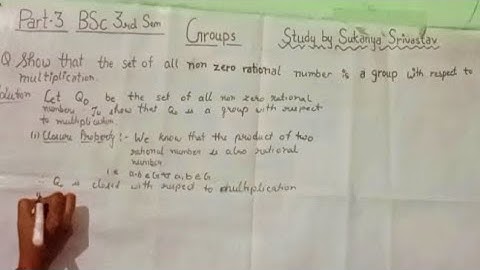 Part-3 BSc 3nd Sem Groups Study by Sukanya Srivastav
Q Show that the set of all non zero rational number is a group with respect to
multiplication.
Solution Let Q₀ be the set of all non zero rational
numbers To show that Q₀ is a group with respect
to multiplication
(i) Closure Property :- We know that the product of two
rational number is also rational
number
i.e a.b ∈ G ∀ a,b ∈ G
∴ Q₀ is closed with respect to multiplication